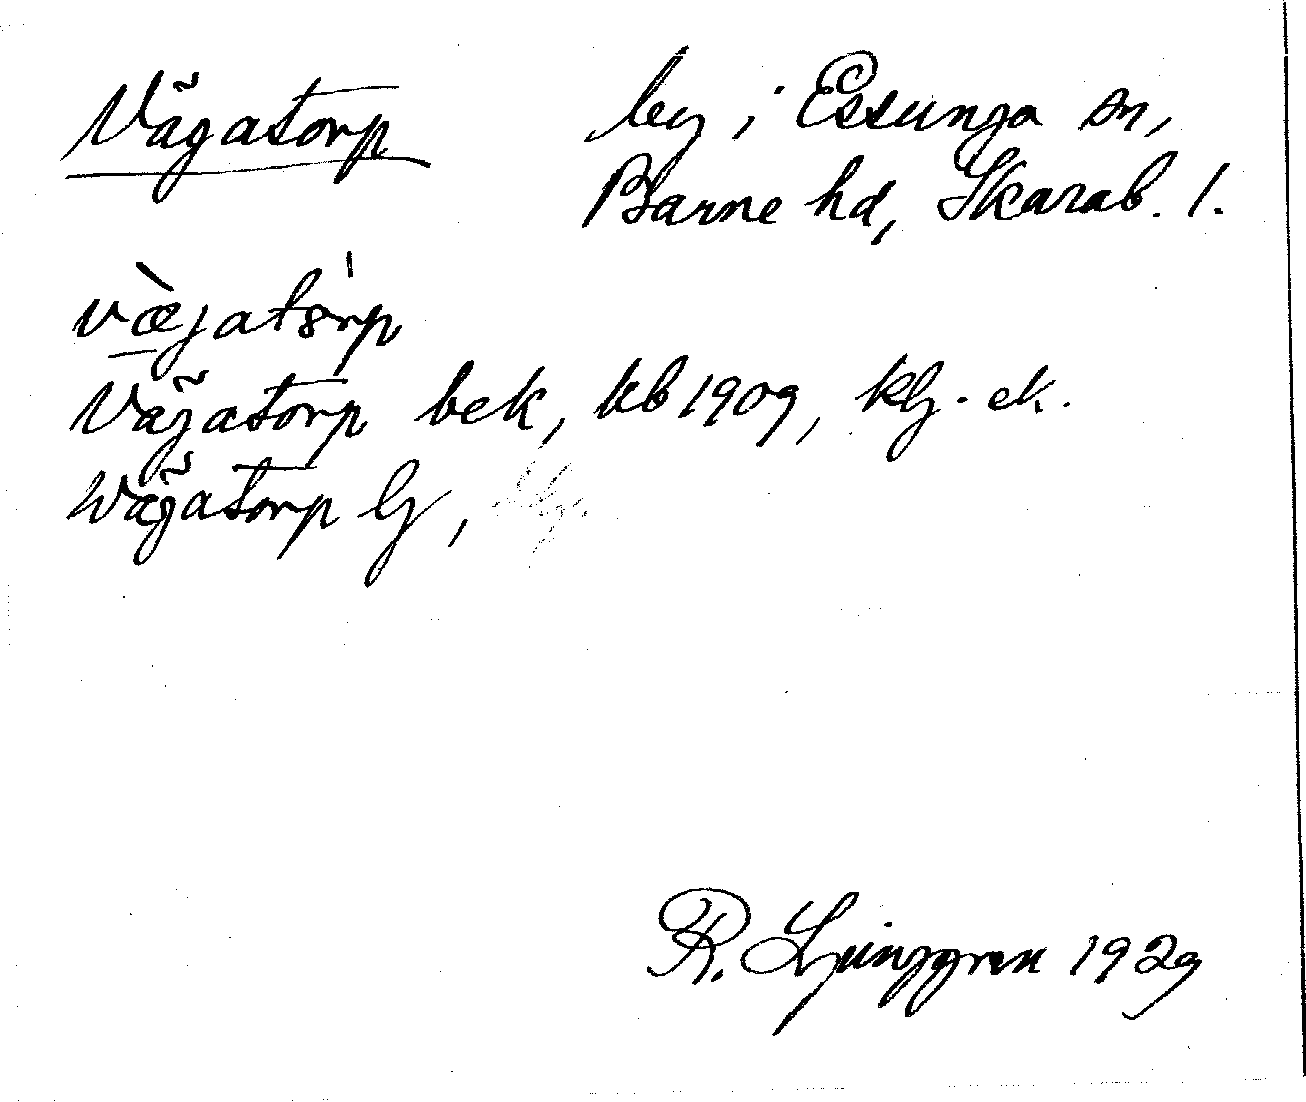 Vägatorp by i Essunga sn,
Barne hd, Skarab. l.
væ̀jatòrp
Vägatorp bek, kb 1909, klj. ek.
Wägatorp lj,
R. Ljunggren 1929